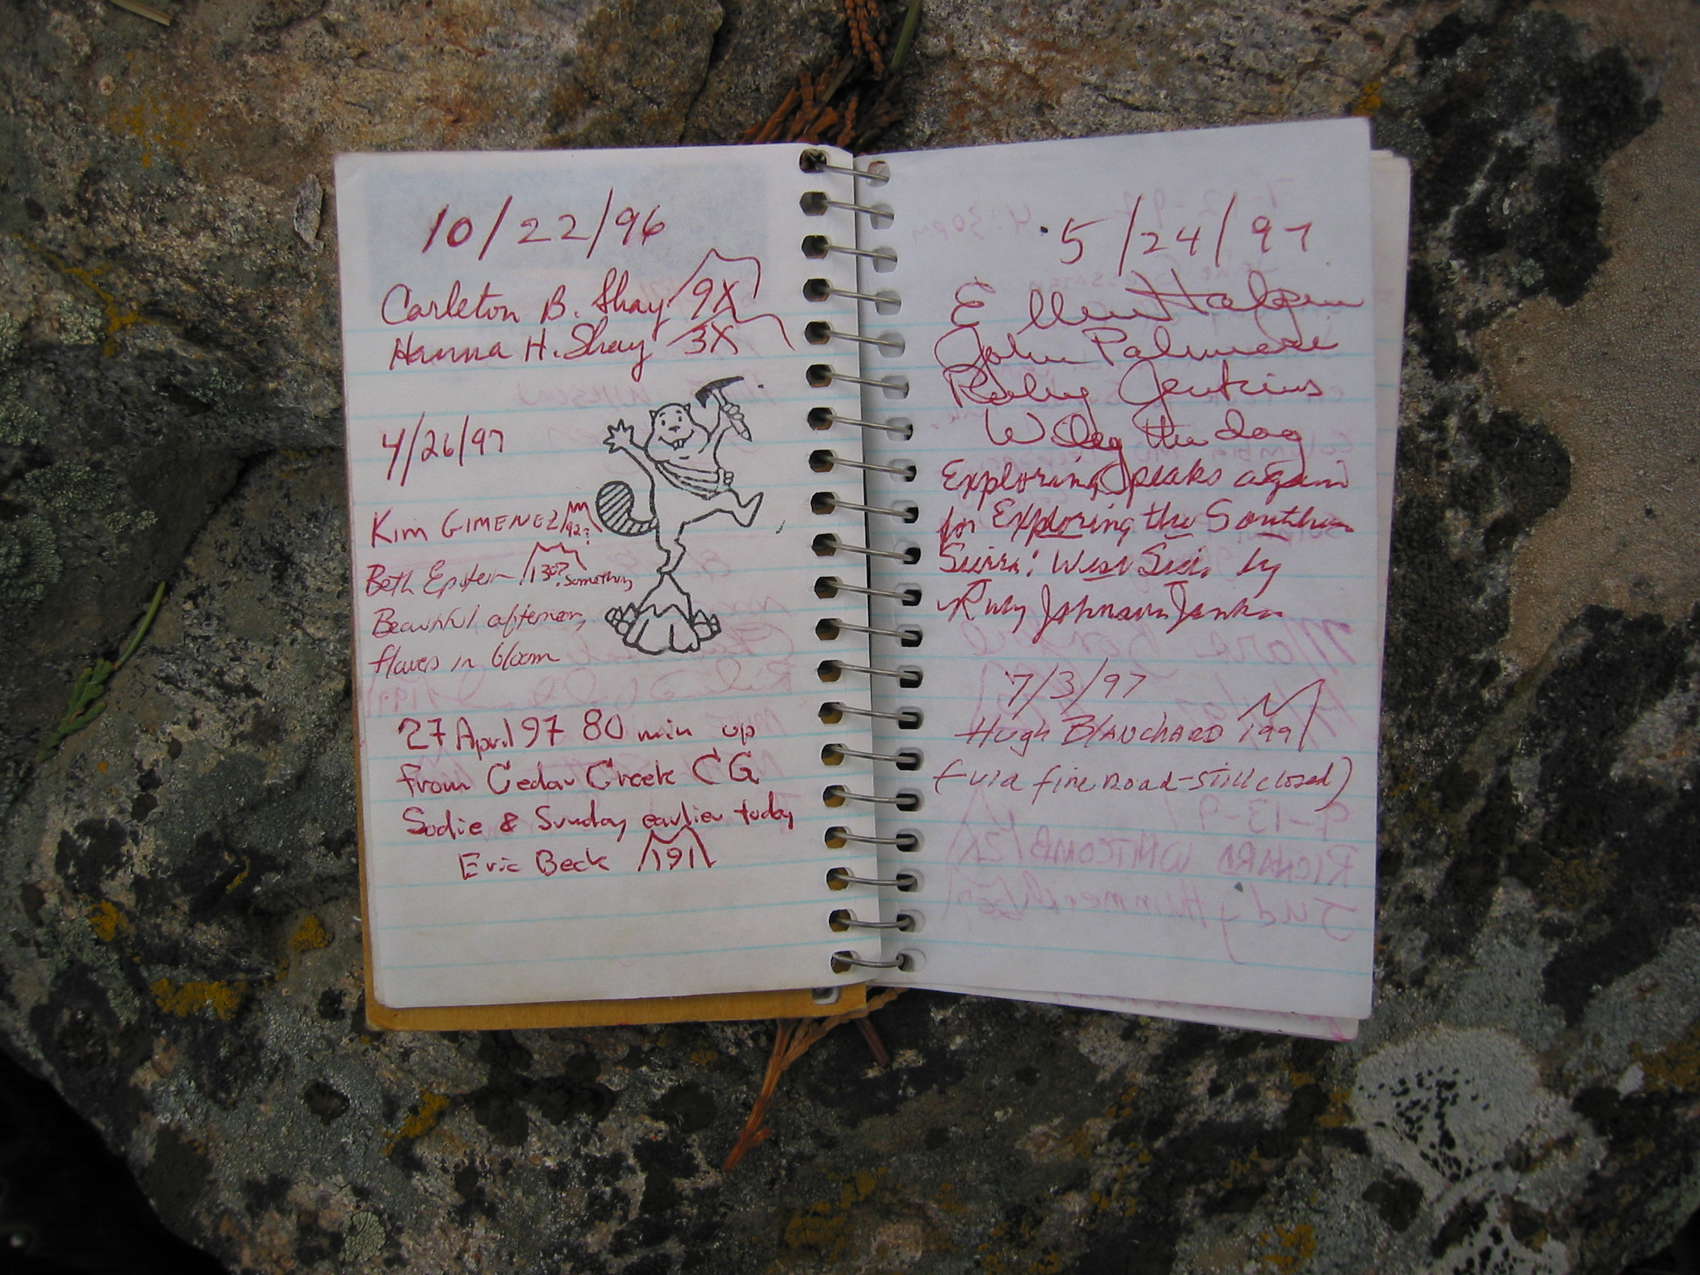 10/22/96
Carleton B. Shay 9X
Hanna H. Shay 3X
4/26/97
Kim GIMENEZ 92?
Beth Epstein 130? Something
Beautiful afternoon,
flowers in bloom
27 April 97 80 min up
from Cedar Creek CG
Sadie & Sunday earlier today
Eric Beck 191
5/24/97
Ellen Halpin
John Palmore
Ruby Jenkins
the dog
Exploring peaks again
for Exploring the Southern
Sierra: West Side by
Ruby Johnson Jenkins
7/3/97
Hugh BLANCHARD 199
(via fire road - still closed)
RICHARD WHITCOMB 2X
Judy